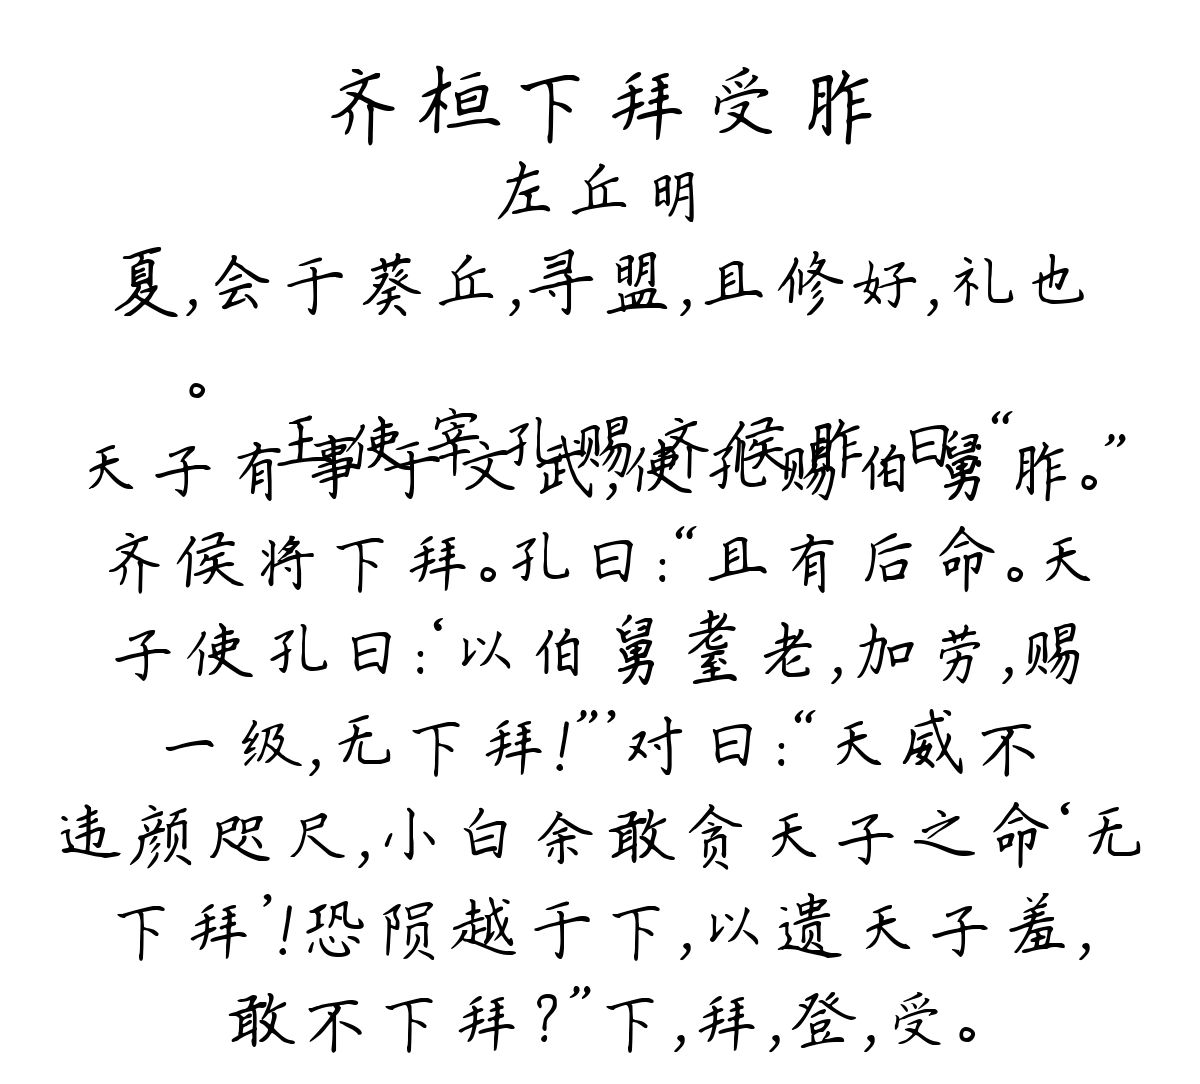 齐桓下拜受胙
左丘明
夏,会于葵丘,寻盟,且修好,礼也
。
王使宰孔赐齐侯胙曰“
天子有事于文武,使孔赐伯舅胙。”
齐侯将下拜。孔曰:“且有后命。天
子使孔曰:‘以伯舅耋老,加劳,赐
一级,无下拜!”’对曰:“天威不
违颜咫尺,小白余敢贪天子之命‘无
下拜’!恐陨越于下,以遗天子羞,
敢不下拜?”下,拜,登,受。